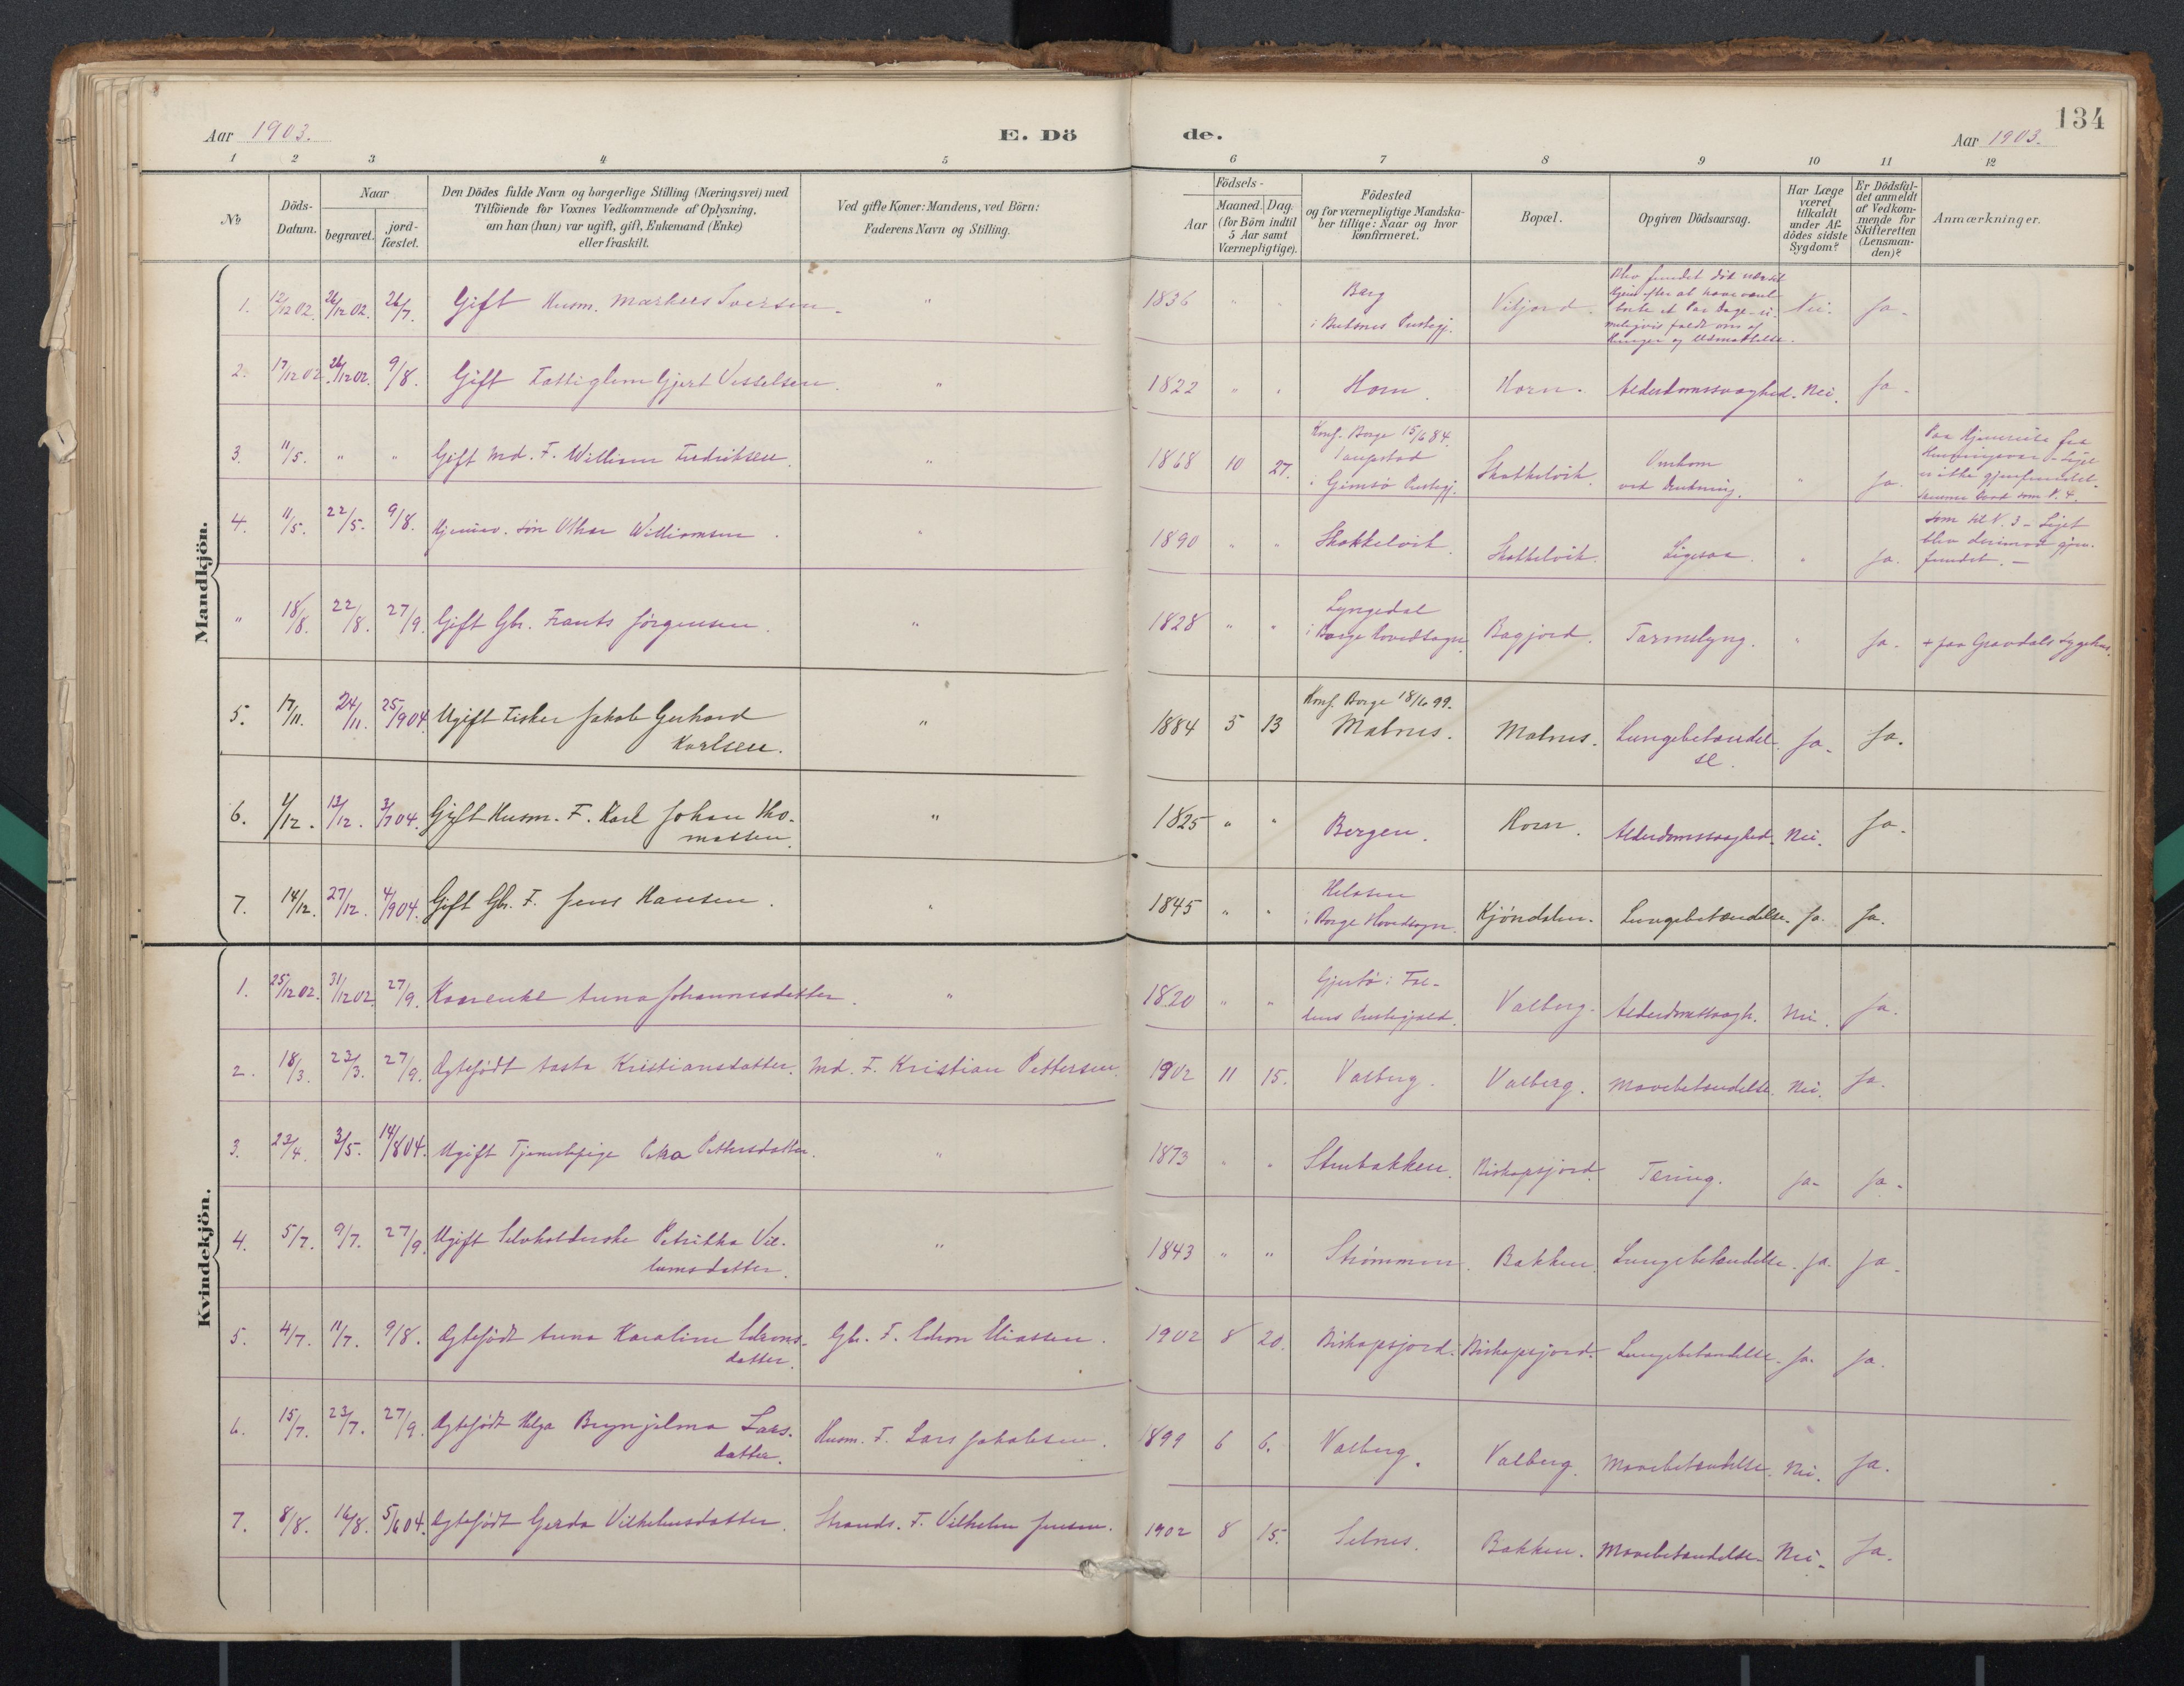 134
Aar 1903. E. Dö de. Aar 1903.
1 2 3 4 5 6 7 8 9 10 11 12
No
Döds-Datum.
Naar
begravet.
jord-fæstet.
Den Dödes fulde Navn og borgerlige Stilling (Næringsvei) med
Tilföiende for Voxnes Vedkommende af Oplysning,
om han (hun) var ugift, gift, Enkemand (Enke)
eller fraskilt.
Ved gifte Koner: Mandens, ved Börn:
Faderens Navn og Stilling.
Födsels-
Aar
Maaned. Dag.
(for Börn indtil
5 Aar samt
Værnepligtige).
Födested
og for værnepligtige Mandska-
ber tillige: Naar og hvor
konfirmeret.
Bopæl.
Opgiven Dödsaarsag.
Har Læge
været
tilkaldt
under Af-
dödes sidste
Sygdom?
Er Dödsfal-
det anmeldt
af Vedkom-
mende for
Skifteretten
(Lensman-
den)?
Anmærkninger.
Mandkjön.
1. 12/12 02. 26/12 02. 26/7. Gift Husm. Markus Iversen. " 1836 " " Berg
i Buksnes Prestegj. Vikjord. Blev fundet död
hjem efter at have været
borte et Par Dage
Hunger og Udmattelse. Nei. Ja.
2. 17/12 02. 26/12 02. 9/8. Gift Fattiglem Gjert Vesselsen. " 1822 " " Horn. Horn. Alderdomssvaghed. Nei. Ja.
3. 11/5. " " Gift Md. F. William Fredriksen. " 1868 10 27. Konf. Borge 15/6 84.
Taupstad
i Gimsö Prestegj. Skottelvik. Omkom
ved Drukning. " Ja. Paa Hjemreise fra
Liget
er ikke gjenfundet.
4. 11/5. 22/5. 9/8. Hjemmev. Sön Othar Williamsen. " 1890 " " Skottelvik. Skottelvik. Ligesaa. " Ja. Som til N. 3 - Liget
blev derimod gjen-
fundet. -
" 18/8. 22/8. 27/9. Gift Gbr. Frants Jörgensen. " 1828 " " Lyngedal
i Borge Hovedsogn. Bagjord. Tarmslyng. " Ja. + paa Gravdals Sygehus.
5. 17/11. 24/11. 25/9 04. Ugift Fisker Jakob Gerhard
Karlsen. " 1884 5 13 Konf. Borge 18/6 99.
Malnes. Malnes. Lungebetændel-
se. Ja. Ja.
6. 4/12. 13/12. 3/7 04. Gift Husm. F. Karl Johan Tho-
massen. " 1825 " " Bergen. Horn. Alderdomssvaghed. Nei. Ja.
7. 14/12. 27/12. 4/9 04. Gift Gbr. F. Jens Hansen. " 1845 " " Helosen
i Borge Hovedsogn. Kjöndalen. Lungebetændelse. Ja. Ja.
Kvindekjön.
1. 25/12 02. 31/12 02. 27/9. Kaarenke Anna Johannesdatter. " 1820 " " Gjertö i Fol-
dens Prestegjæld. Valberg. Alderdomssvagh. Nei. Ja.
2. 18/3. 23/3. 27/9. Ægtefödt Aasta Kristiansdatter. Md. F. Kristian Pettersen. 1902 11 15. Valberg. Valberg. Mavebetændelse. Nei. Ja.
3. 23/4. 3/5. 14/8 04. Ugift Tjenestepige Petra Pettersdatter. " 1873 " " Stenbakken. Biskopsjord. Tæring. Ja. Ja.
4. 5/7. 9/7. 27/9. Ugift Selvholderske Petrikka Vil-
lumsdatter. " 1843 " " Strömmen. Bakken. Lungebetændelse. Ja. Ja.
5. 4/7. 11/7. 9/8. Ægtefödt Anna Karoline Edrons-
datter. Gbr. F. Edron Eliassen. 1902 8 20. Biskopsjord. Biskopsjord. Lungebetændelse. Ja. Ja.
6. 15/7. 23/7. 27/9. Ægtefödt Helga Brynjelma Lars-
datter. Husm. F. Lars Jakobsen. 1899 6 6. Valberg. Valberg. Mavebetændelse. Nei. Ja.
7. 8/8. 16/8. 5/6 04. Ægtefödt Gerda Vilhelmsdatter. Strands. F. Vilhelm Jensen. 1902 8 15. Selnes. Bakken. Mavebetændelse. Nei. Ja.